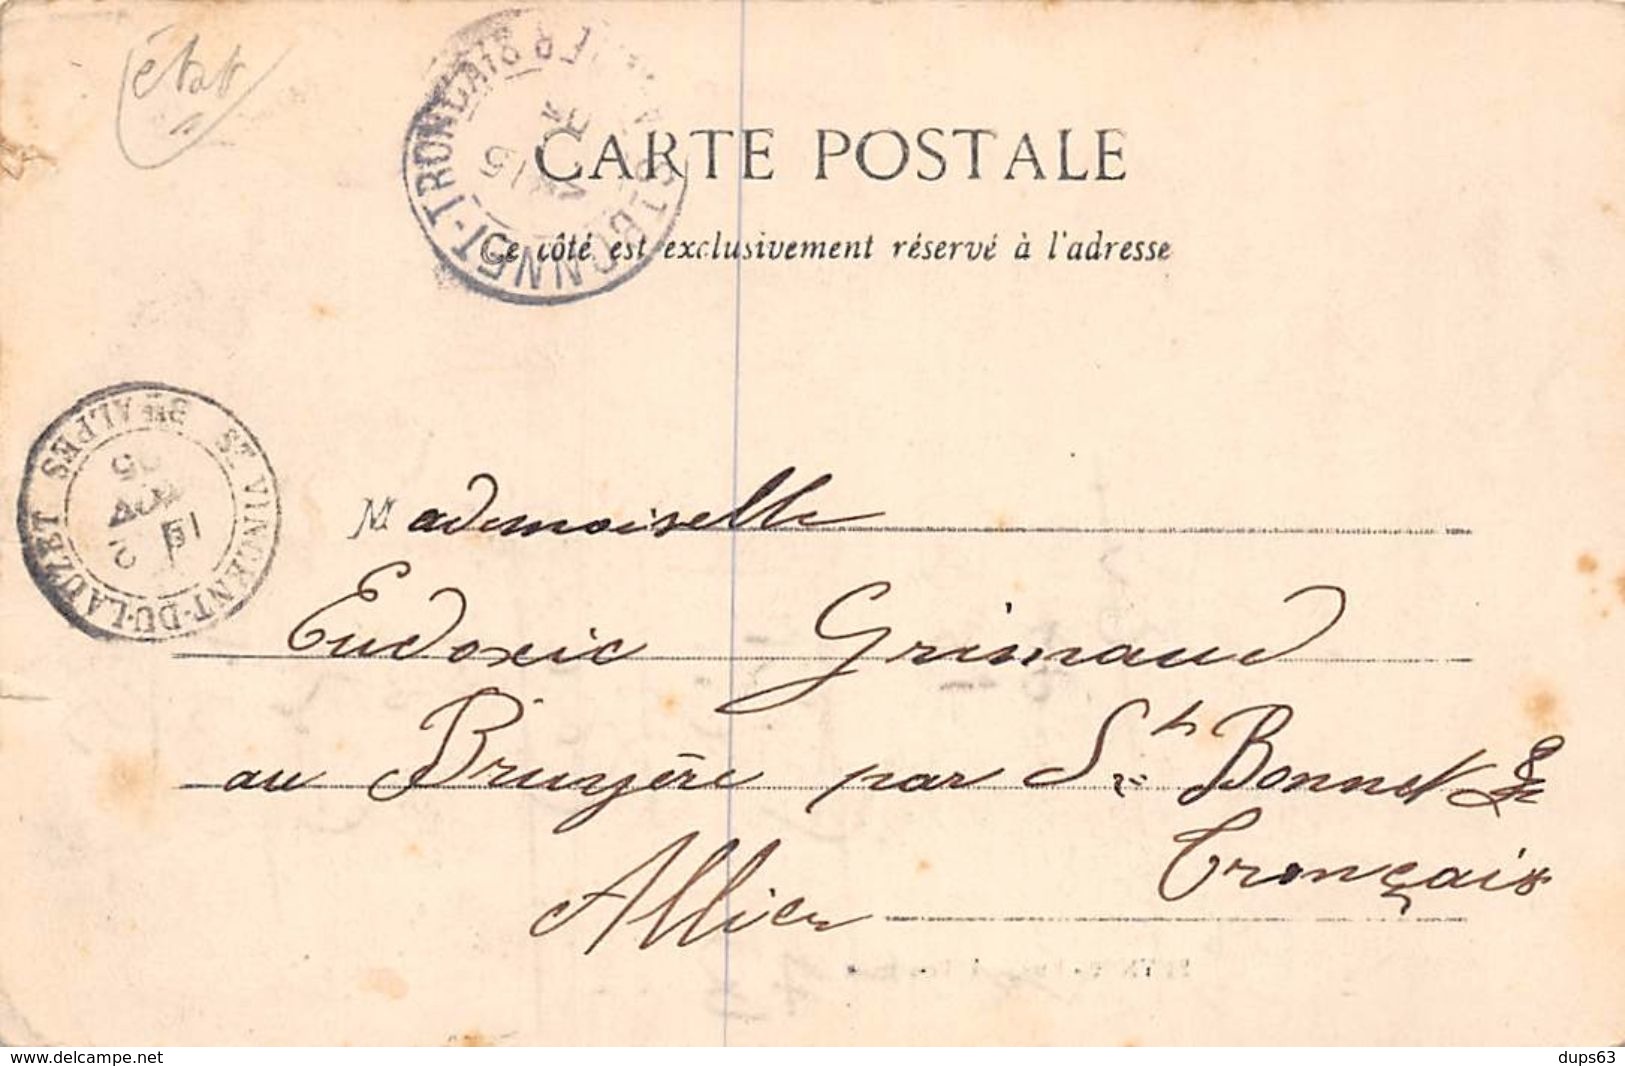 état
CARTE POSTALE
Ce côté est exclusivement réservé à l'adresse
ST BONNET-TRONÇAIS
ST VINCENT-DU-LAUZET Bses ALPES
Mademoiselle
Eudoxie Grimaud
au Bruyère par St Bonnet
Tronçais
Allier
www.delcampe.net
dups63